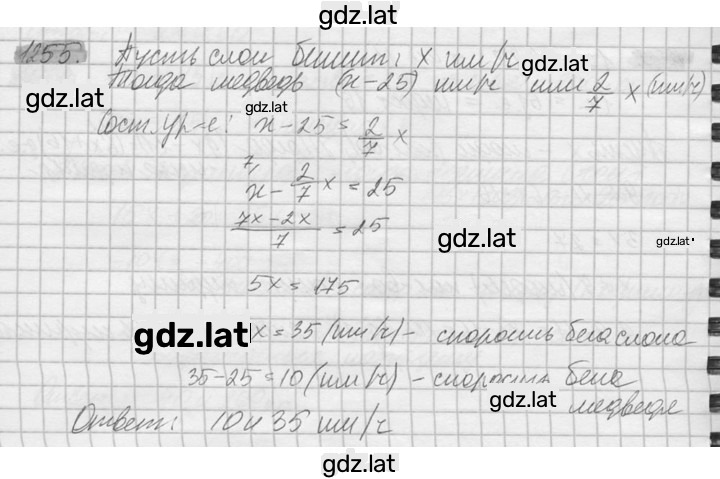 gdz.lat
1255. Пусть слон бежит: x км/ч
Тогда медведь (x-25) км/ч или 2/7 x (км/ч)
gdz.lat
gdz.lat
Сост. ур-е: x-25 = 2/7 x
7,
x - 2/7 x = 25
(7x-2x)/7 = 25
gdz.lat
gdz.lat
5x = 175
gdz.lat
x = 35 (км/ч) - скорость бега слона
35-25=10 (км/ч) - скорость бега
gdz.lat
медведя
Ответ: 10 и 35 км/ч
gdz.lat